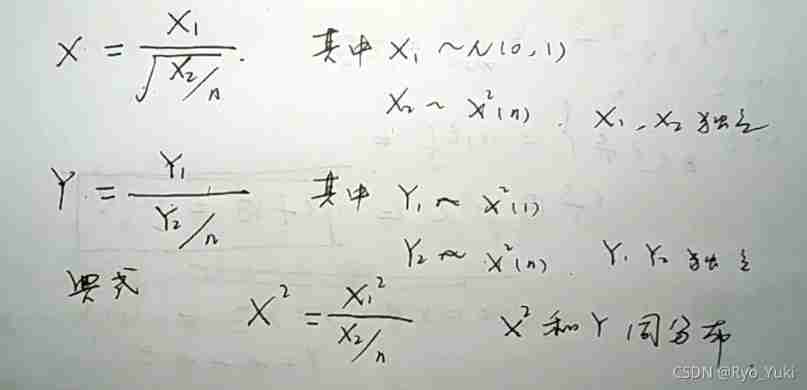 X = X₁ / √(X₂/n). 其中 X₁ ~ N(0,1)
X₂ ~ χ²(n). X₁, X₂ 独立
Y = Y₁ / (Y₂/n) 其中 Y₁ ~ χ²(1)
Y₂ ~ χ²(n). Y₁ Y₂ 独立
X² = X₁² / (X₂/n) X² 和 Y 同分布.
CSDN @Ryo_Yuki